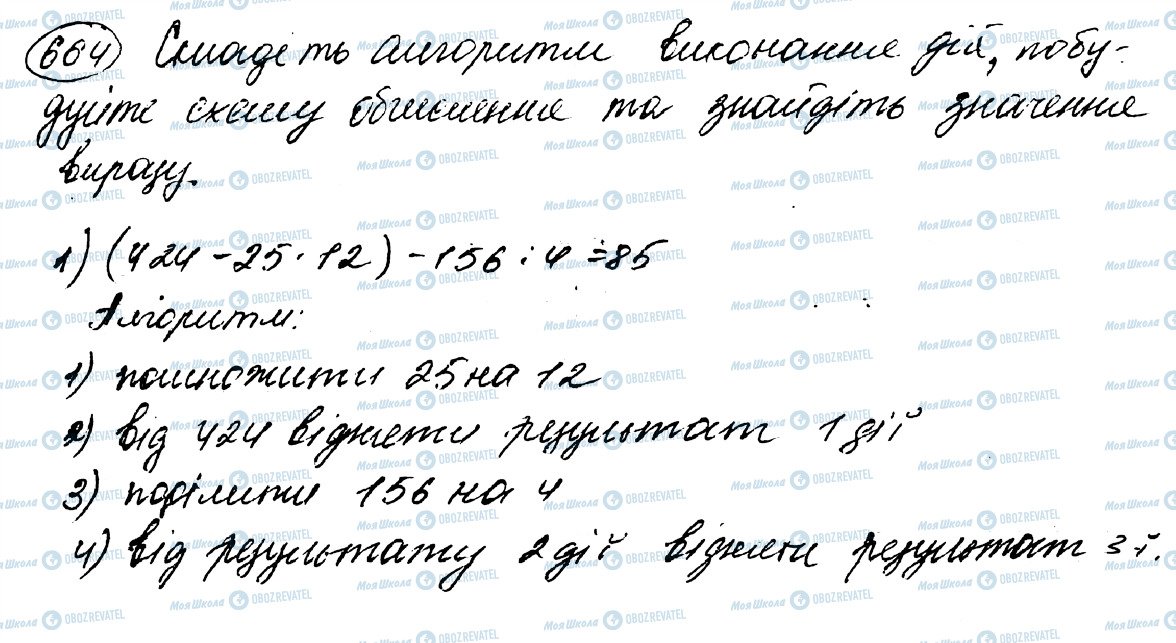 664 Складіть алгоритм виконання дій, побу-
дуйте схему обчислення та знайдіть значення
виразу.
1) (424 - 25 · 12) - 156 : 4 = 85
Алгоритм:
1) помножити 25 на 12
2) від 424 відняти результат 1 дії
3) поділити 156 на 4
4) від результату 2 дії відняти результат 3 ї.